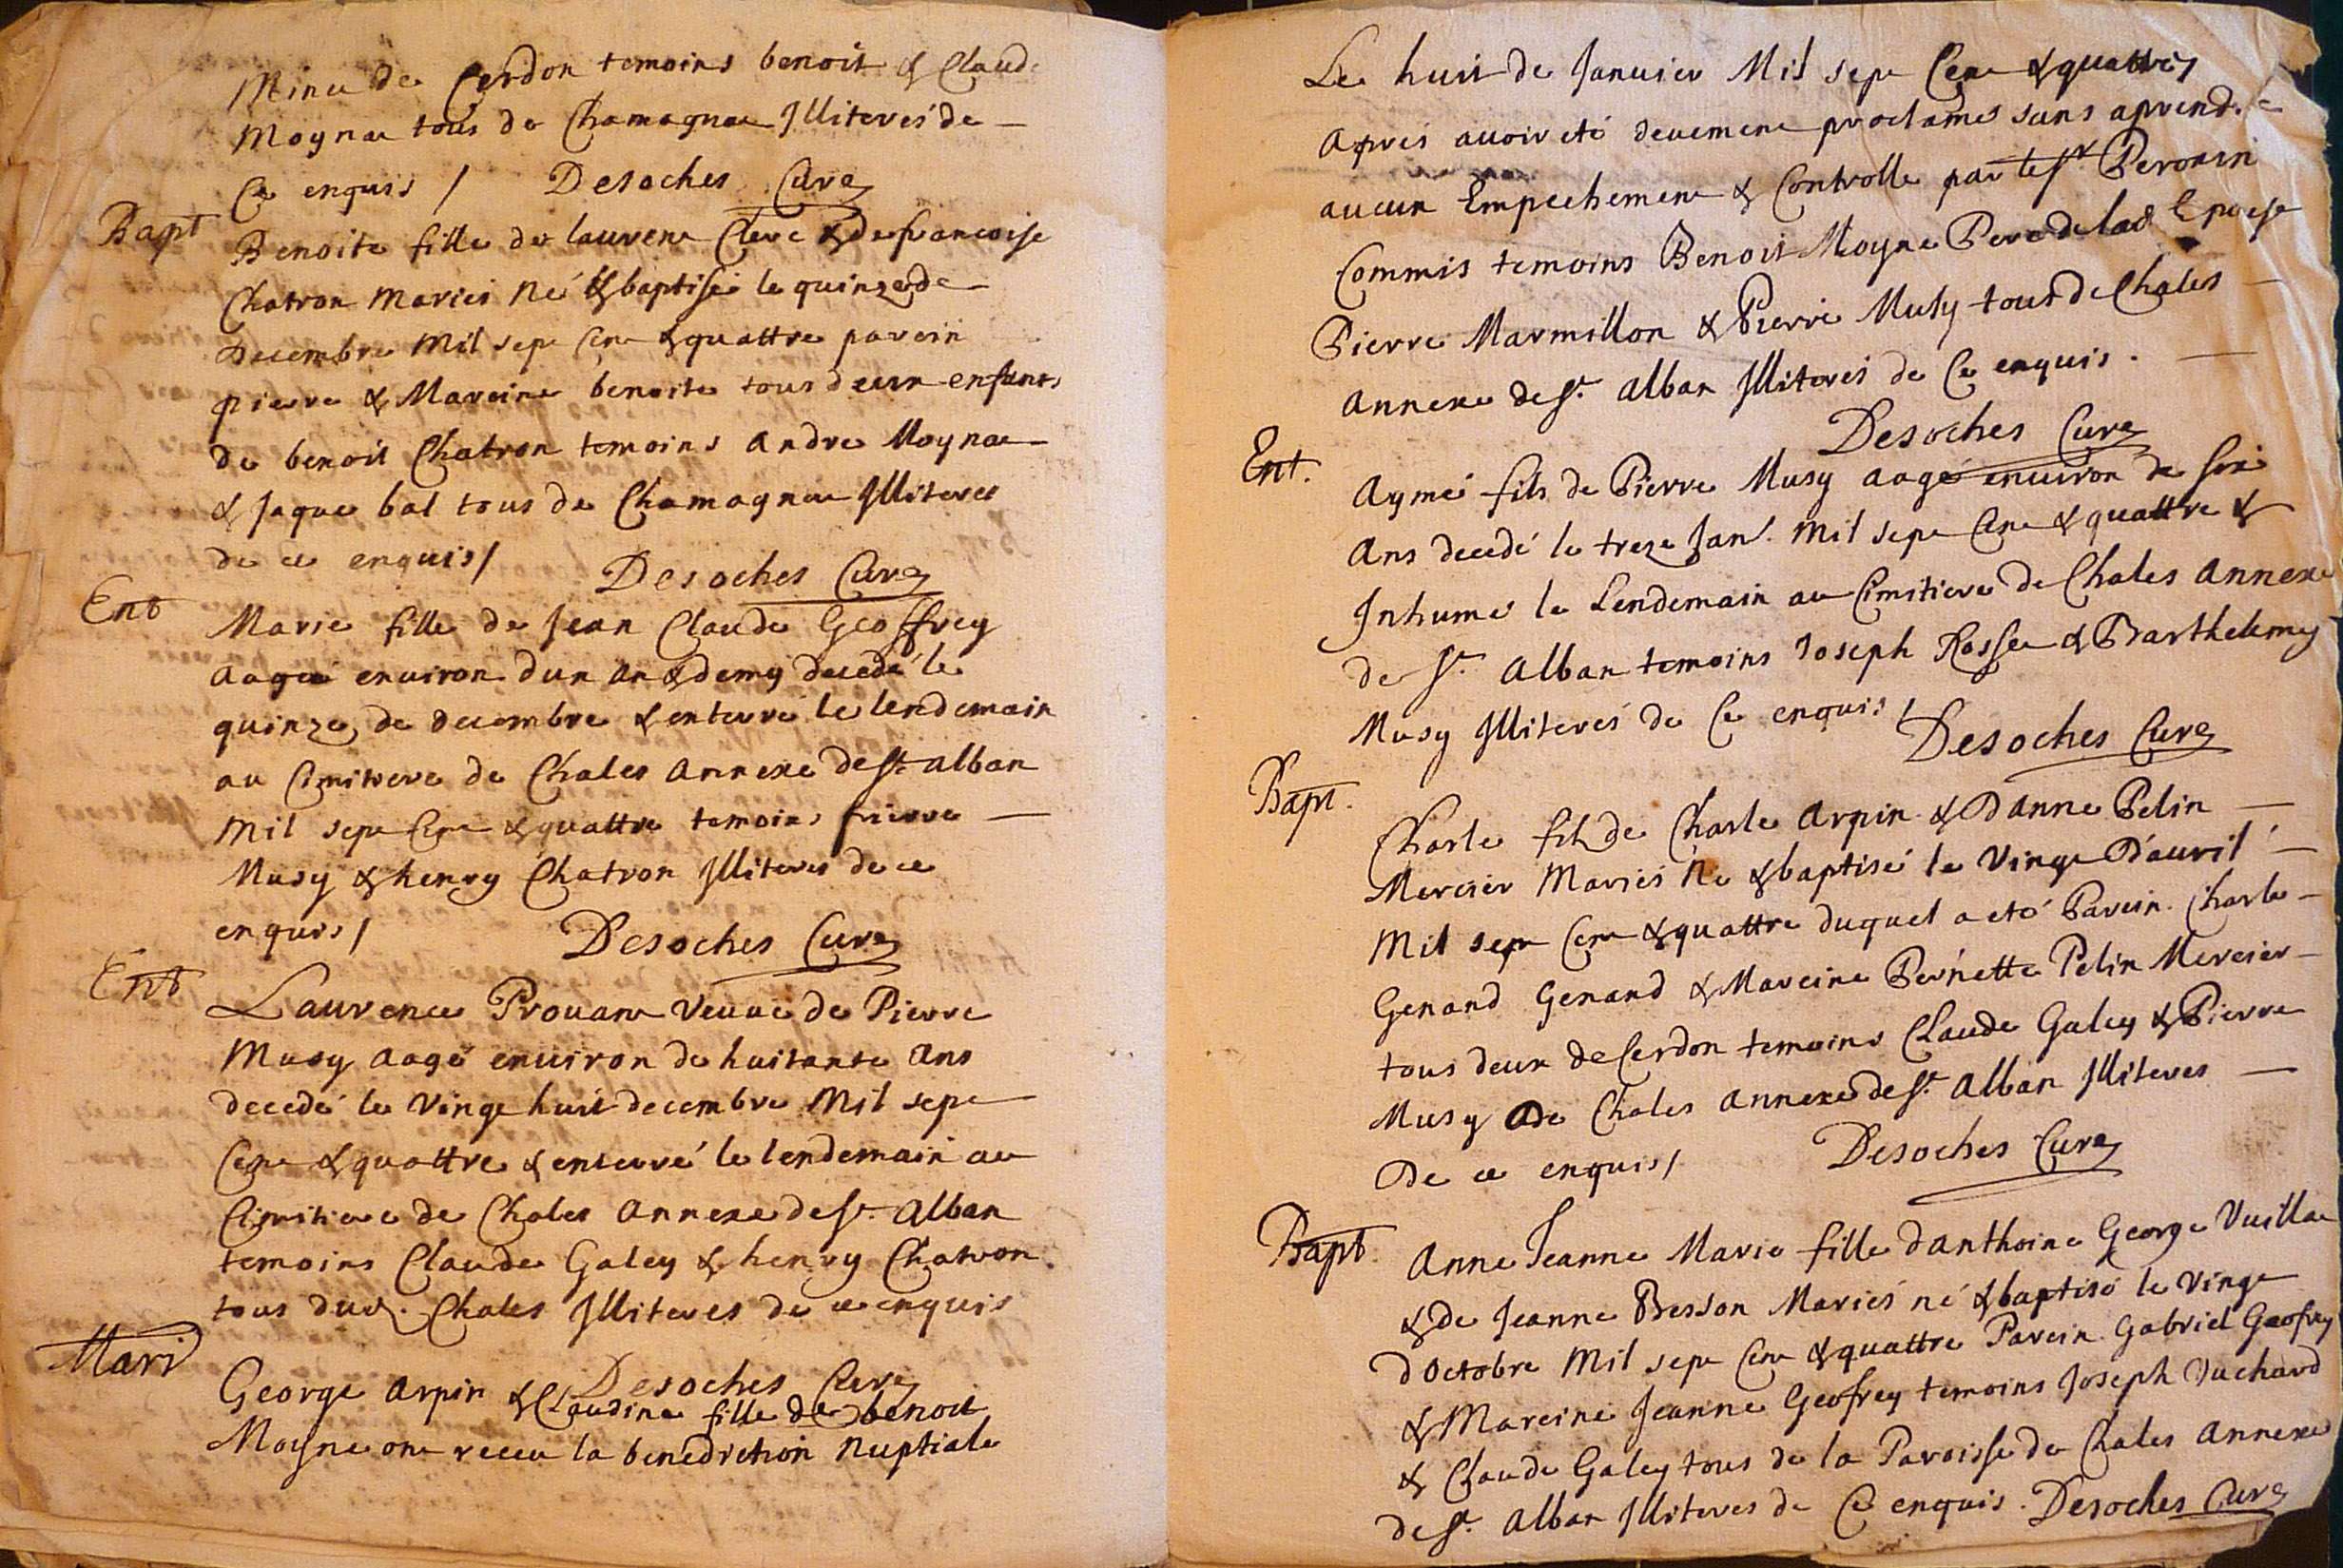 Minu de Cerdon temoins benoit & Claude
Moynat tous de Chamagnat Illiterés de
Ce enquis / Desoches Curé
Bapt
Benoite fille de laurent Clerc & de francoise
Chatron Mariés Né & baptisée le quinze de
Decembre Mil sept Cent & quattre parein
pierre & Mareine benoite tous deux enfants
de benoit Chatron temoins andre Moynat
& Jaque bal tous de Chamagnat Illiteres
de ce enquis / Desoches Curé
Ent
Marie fille de Jean Claude Geoffrey
aagée environ dun an & demy decedé le
quinze de decembre & enterré le lendemain
au Cimitiere de Chales annexe de St. alban
Mil sept Cent & quattre temoins pierre
Musy & henry Chatron Illiteres de ce
enquis / Desoches Curé
Ent
Laurence Prouant veuve de Pierre
Musy aagé environ de huitante ans
decedé le vingt huit decembre Mil sept
Cent & quattre & enterré le lendemain au
Cimitiere de Chales annexe de St. alban
temoins Claude Galey & henry Chatron
tous dud. Chales Illiteres de ce enquis
Desoches Curé
Mari
George arpin & Claudine fille de benoit
Moyne ont receu la benediction Nuptiale
Le huit de Januier Mil sept Cent & quattre
apres auoir eté deuement proclamés sans aprendre
aucun Empechement & Controlle par le Sr Peronin
Commis temoins Benoit Moyne Pere de lad Epouse
Pierre Marmillon & Pierre Musy tous de Chales
annexe de St. alban Illiterés de Ce enquis.
Desoches Curé
Ent.
Aymé fils de Pierre Musy aagé environ de six
ans decedé le treze Janv. Mil sept Cent & quattre &
Inhumé le Lendemain au Cimitiere de Chales annexe
de St. alban temoins Joseph Rosset & Barthelemy
Musy Illiterés de Ce enquis / Desoches Curé
Bapt.
Charle fils de Charle arpin & Danne Pelin
Mercier Mariés Né & baptisé le Vingt Dauril
Mil sept Cent & quattre duquel a eté Parein Charle
Genand Genand & Mareine Pernette Pelin Mercier
tous deux de Cerdon temoins Claude Galey & Pierre
Musy de Chales annexe de St. alban Illiteres
De ce enquis / Desoches Curé
Bapt.
Anne Jeanne Marie fille danthoine George Vuillat
& de Jeanne Besson Mariés né & baptisé le vingt
dOctobre Mil sept Cent & quattre Parein Gabriel Geofrey
& Mareine Jeanne Geofrey temoins Joseph Juchard
& Claude Galey tous de la Paroisse de Chales annexe
de St. alban Illiteres de Ce enquis. Desoches Curé